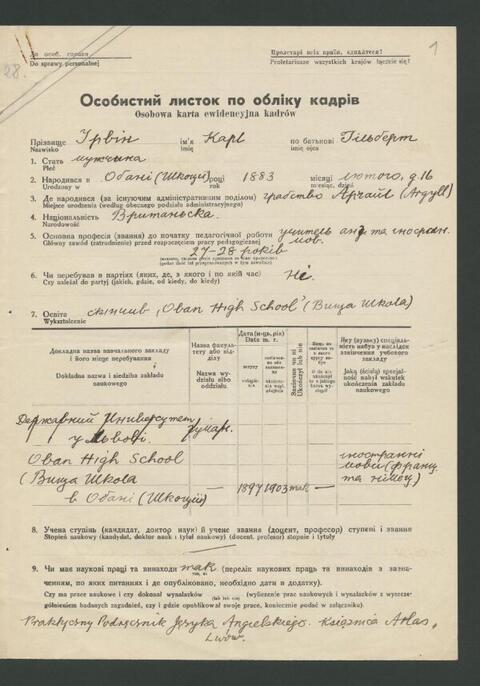 До особ. справи
Do sprawy personalnej
Пролетарі всіх країн, єднайтеся!
Proletariusze wszystkich krajów łączcie się!
28.
1
Особистий листок по обліку кадрів
Osobowa karta ewidencyjna kadrów
Прізвище Ірвін ім'я Карл по батькові Гільберт
Nazwisko imię imię ojca
1. Стать мужчына
Płeć
2. Народився в Обані (Шкоції) році 1883 місяці лютого, д. 16
Urodzony w rok miesiąc, dzień
3. Де народився (за існуючим адміністративним поділом) графство Арґайл (Argyll)
Miejsce urodzenia (według obecnego podziału administracyjnego)
4. Національність Британська
Narodowość
5. Основна професія (звання) до початку педагогічної роботи учитель анг та іностран.
Główny zawód (zatrudnienie) przed rozpoczęciem pracy pedagogicznej мов.
27-28 років
6. Чи перебував в партіях (яких, де, з якого і по який час) Ні.
Czy należał do partyj (jakich, gdzie, od kiedy, do kiedy)
7. Освіта скінчив "Oban High School" (Вища Школа)
Wykształcenie
Докладна назва навчального закладу і його місце перебування
Dokładna nazwa i siedziba zakładu naukowego
Назва факультету або відділу
Nazwa wydziału albo oddziału
Дата (м-ць, рік)
Data m. r.
вступу
Закінчив чи ні
Ukończył lub nie
Яку (вузьку) спеціальність набув у наслідок закінчення учбового закладу
Jaką (ścisłą) specjalność nabył wskutek ukończenia zakładu naukowego
Державний Университет
у Львові. гуман.
Oban High School
(Вища Школа
в Обані (Шкоции) 1897 1903 так —
іностранні мови (франц та німец)
8. Учена ступінь (кандидат, доктор наук) й учене звання (доцент, професор) ступені і звання
Stopień naukowy (kandydat, doktor nauk i tytuł naukowy) (docent, profesor) stopnie i tytuły
9. Чи має наукові праці та винаходи так (перелік наукових праць та винаходів з зазначенням, по яких питаннях і де опубліковано, необхідно дати в додатку).
так, ні
Czy ma prace naukowe i czy dokonał wynalazków (wyliczenie prac naukowych i wynalazków z wyszczególnieniem badanych zagadnień, czy i gdzie opublikował swoje prace, koniecznie podać w załączniku).
(tak lub nie)
Praktyczny Podręcznik Języka Angielskiego. Książnica Atlas,
Lwów.